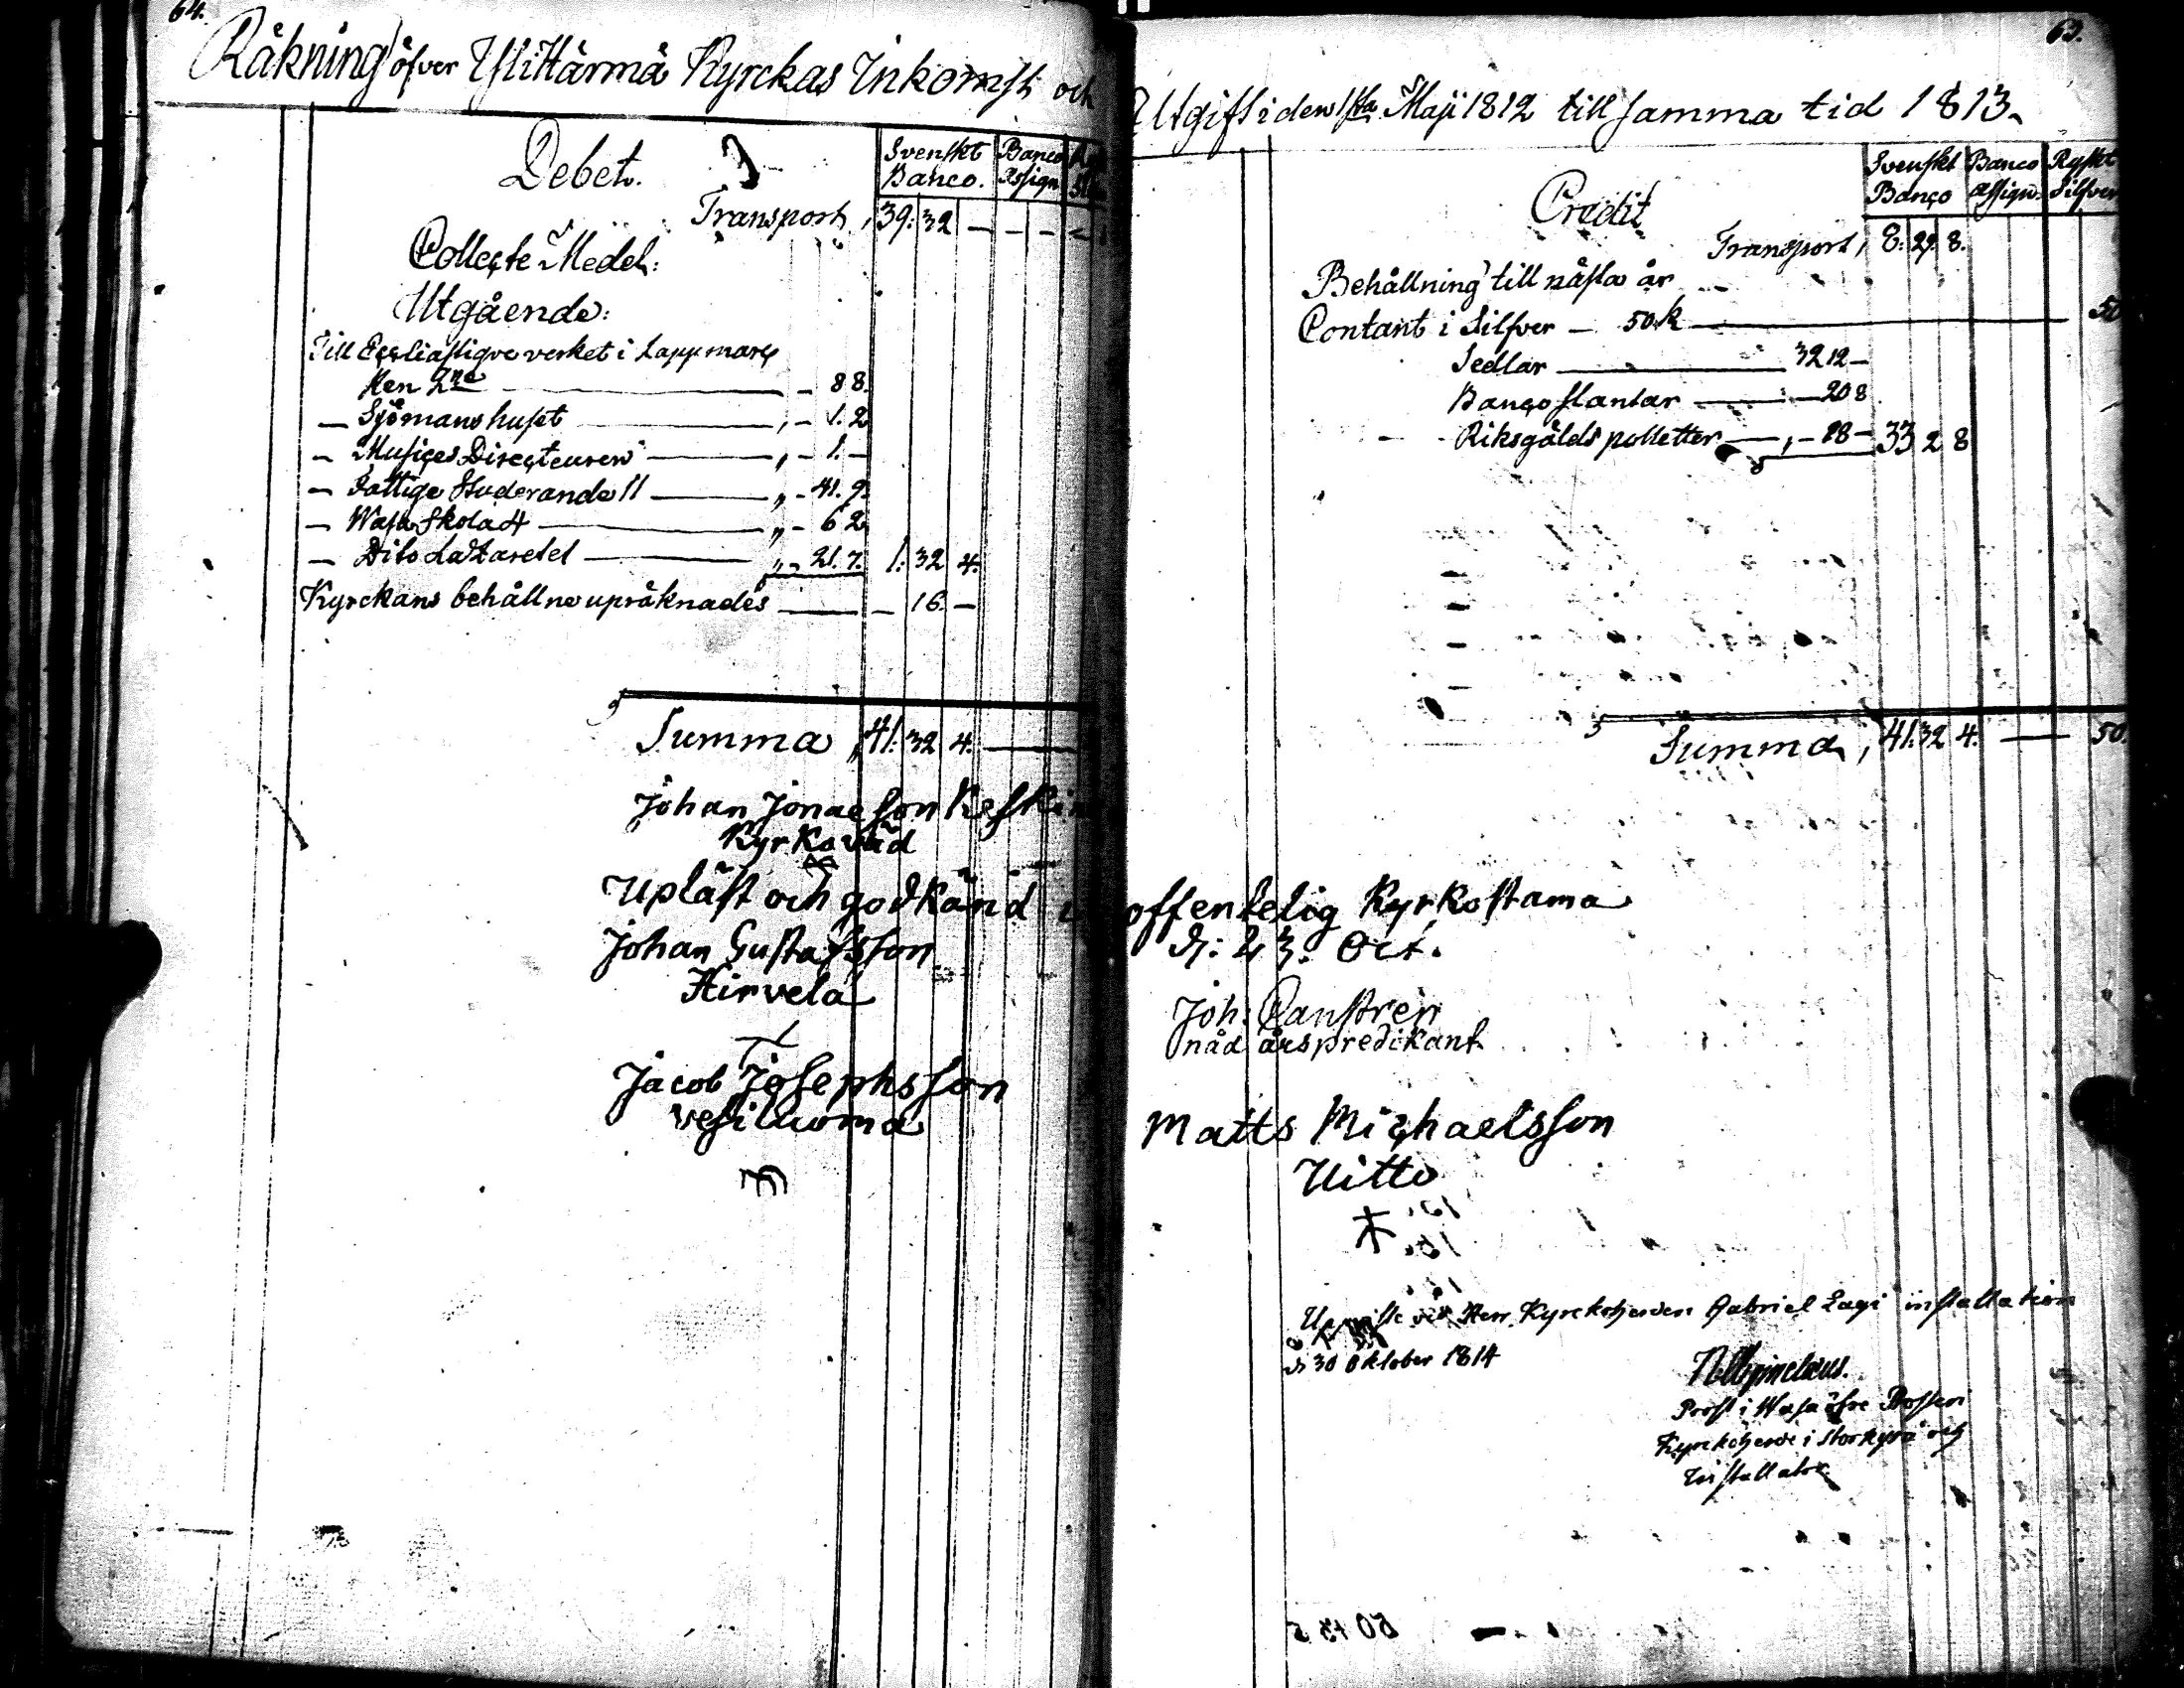 64.
Räkning öfver Ylihärmä Kyrckas Inkomst och
Debet.
Svenskt Banco.
Banco Assign
Transport, 39: 32 — — — —
Collecte Medel:
Utgående:
Till Eccliastiqve verket i Lappmarc
ken 2ne — 8 8.
— Sjömans huset — 1. 2
— Musices Directeuren — 1. —
— Fattige Studerande 11 — 41. 9.
— Wasa Skola 4 — 6 2
— Dito Lazaretet — 21. 7. 1: 32 4.
Kyrckans behållne upräknades — — 16. —
Summa 41: 32 4. —
Johan Jonaesson Keski
Kyrkovärd
Upläst och godkänd i
Johan Gustafsson
Hirvelä
Jacob Josephsson
vesiluoma
63.
Utgift iden 1sta Maji 1812 till samma tid 1813.
Credit
Svenskt Banco
Banco assign.
Ryskt Silfver
Transport, 8: 29. 8.
Behållning till nästa år
Contant i Silfver — 50. k — 50
Sedlar — 32 12 —
Banco slantar — 20 8
Riksgälds polletter — 18 — 33 2 8
Summa, 41. 32 4. — 50.
offentelig Kyrkostama
d: 23. Oct.
Joh:
nåd årspredikant.
Matts Michaelsson
Uitto
vid Herr Kyrckoherden Gabriel Lagi installation
d 30 Oktober 1814
Prost i Wasa öfre
Kyrckoherde i Storkyro och
Installator